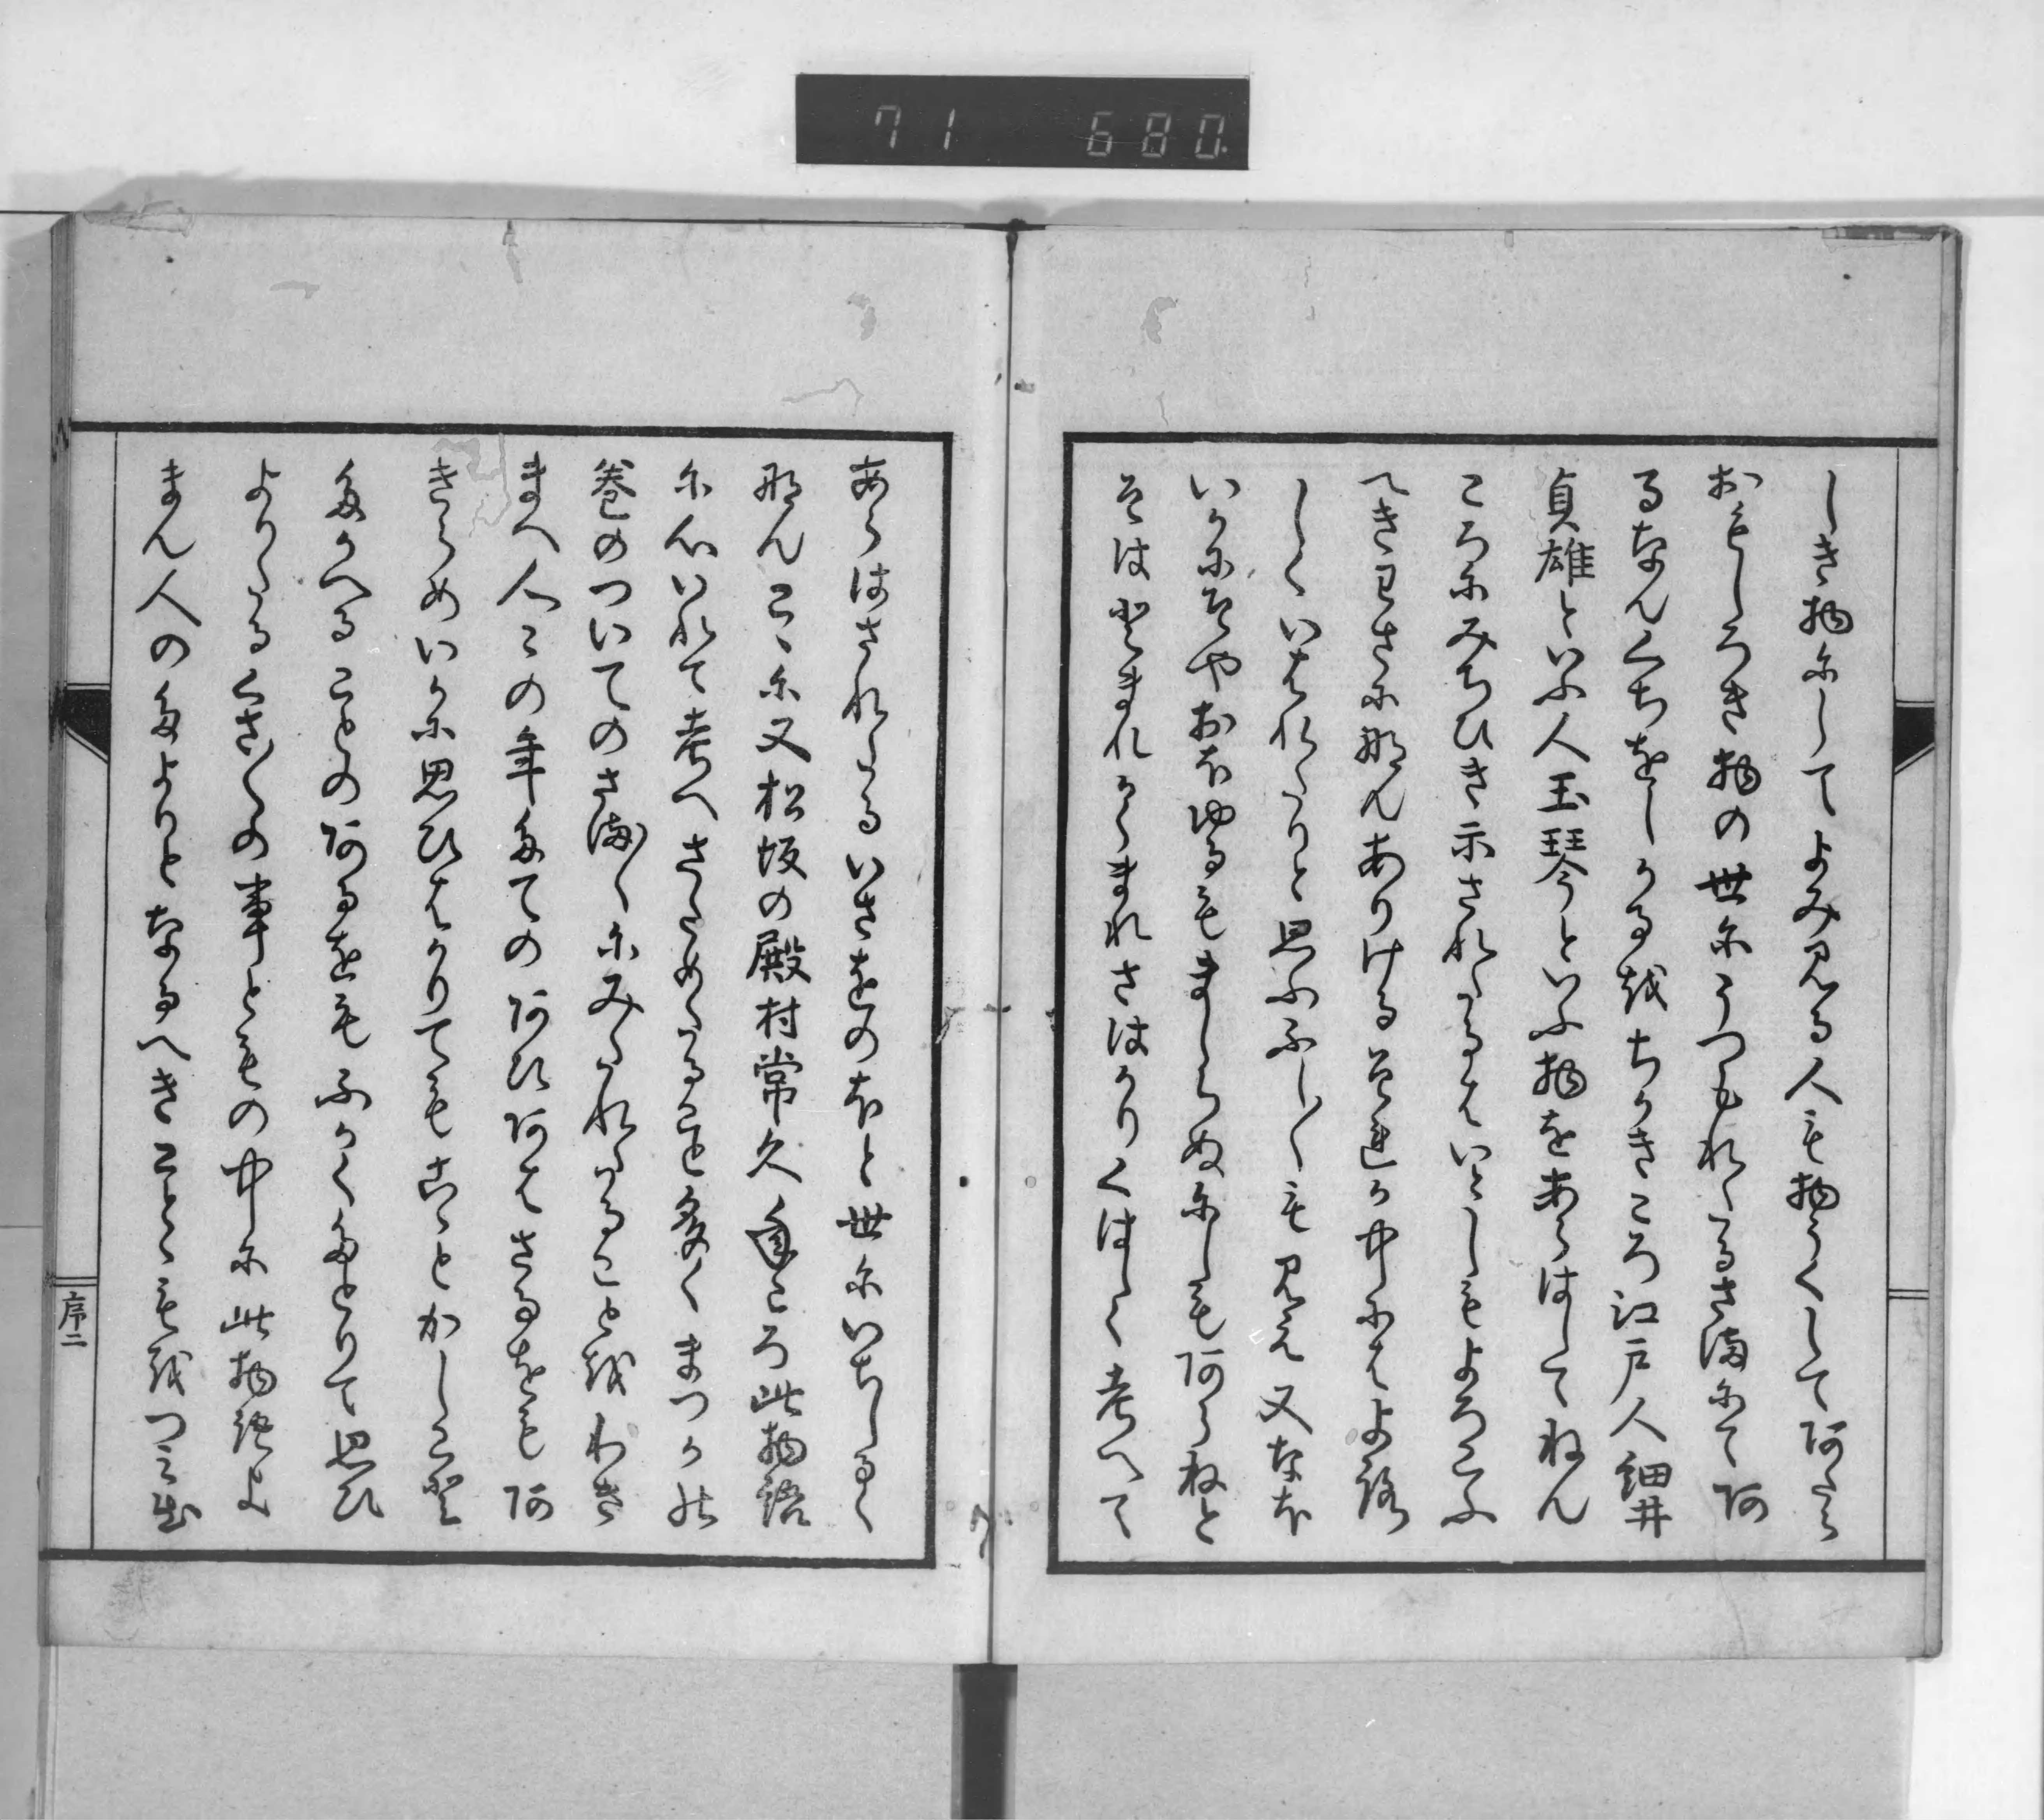 71 680
しき物にしてよみみる人も物うくしてあたら
おもしろき物の世にうつもれたるさまにてあ
るなんくちをしかるをちかきころ江戸人細井
貞雄といふ人玉琴といふ物をあらはしてねん
ころにみちひき示されたるはいとしもよろこふ
へきわさになんありけるそれか中にはよろ
しくいはれたりと思ふふし〳〵も見え又なほ
いかにそやおほゆるもましらぬにしもあらねと
そはとまれかくまれさはかりくはしく考へて
あらはされたるいさをのほと世にいちしるく
なんこゝに又松坂の殿村常久年ころ此物語
に心いれて考へさためたることも多くまつかの
巻のついてのさま〳〵にみたれたることをわき
まへ人〻の年たてのあひあはさるをもあ
きらめいかに思ひはかりてもこゝとかしこと
たかへることのあるをもふかくたとりて思ひ
よりたるくさ〳〵の事ともの中に此物語よ
まん人のたよりとなるへきことゝもをつみ出
序二